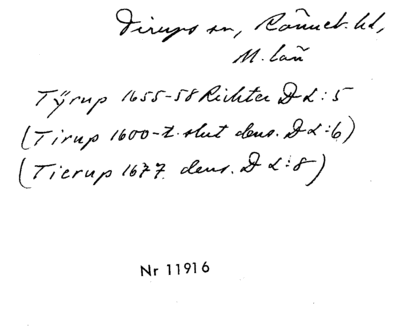 Tirups sn, Rönneb. hd,
M. län
Tÿrup 1655-58 Richter D L:5
(Tirup 1600-t. slut dens. D L:6)
(Tierup 1677 dens. D L:8)
Nr 11916